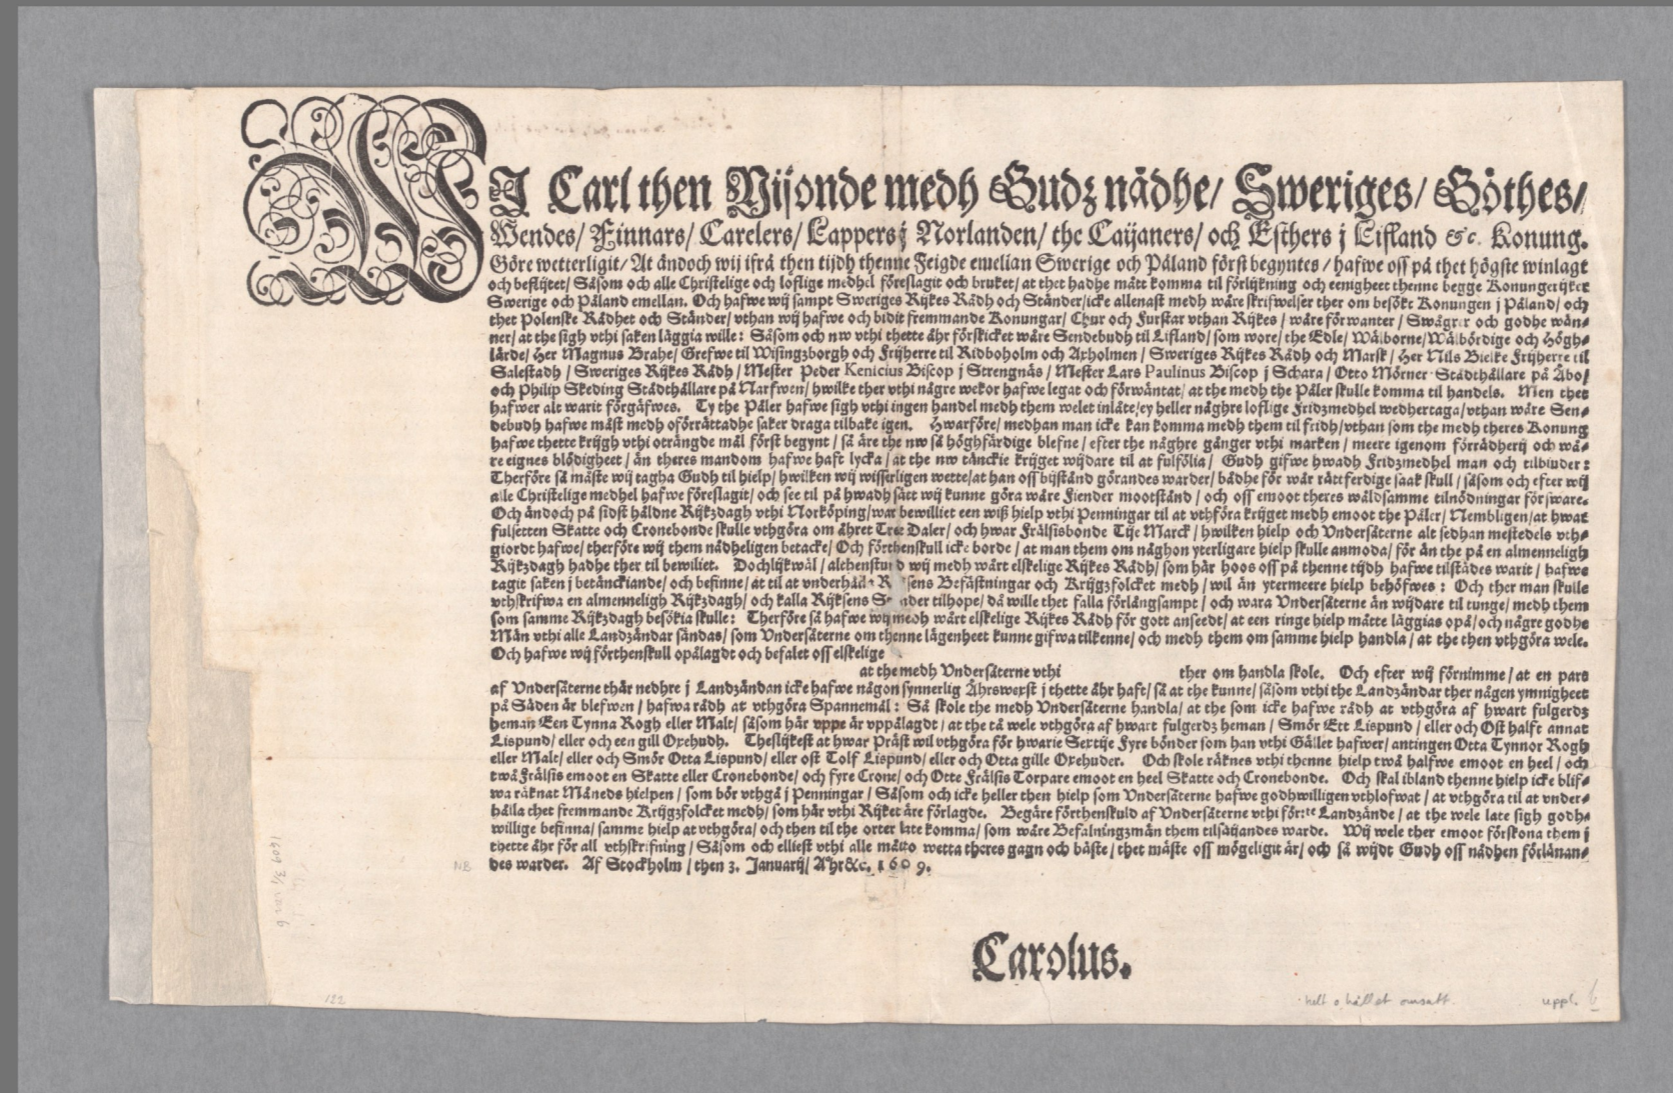 WJ Carl then Nijonde medh Gudz nådhe/ Sweriges/ Göthes/
Wendes/ Finnars/ Carelers/ Lappers ij Norlanden/ the Caijaners/ och Esthers j Lifland &c. Konung.
Göre wetterligit/ At ändoch wij ifrå then tijdh thenne Feigde emellan Swerige och Påland först begyntes/ hafwe oss på thet högste winlagt
och beflijtet/ Såsom och alle Christelige och loflige medhel föreslagit och bruket/ at thet hadhe mått komma til förlijkning och eenigheet thenne begge Konungerijker
Swerige och Påland emellan. Och hafwe wij sampt Sweriges Rijkes Rådh och Ständer/ icke allenast medh wåre skrifwelser ther om besökt Konungen j Påland/ och
thet Polenske Rådhet och Ständer/ vthan wij hafwe och bidit fremmande Konungar/ Chur och Furstar vthan Rijkes/ wåre förwanter/ Swågrar och godhe wän-
ner/ at the sigh vthi saken läggia wille: Såsom och nw vthi thette åhr förskicket wåre Sendebudh til Lifland/ som wore/ the Edle/ Wälborne/ Wälbördige och Högh-
lärde/ Her Magnus Brahe/ Grefwe til Wisingzborgh och Frijherre til Ridboholm och Axholmen/ Sweriges Rijkes Rådh och Marsk/ Her Nils Bielke Frijherre til
Salestadh/ Sweriges Rijkes Rådh/ Mester Peder Kenicius Biscop j Strengnäs/ Mester Lars Paulinus Biscop j Schara/ Otto Mörner Städthållare på Åbo/
och Philip Skeding Städthållare på Narfwen/ hwilke ther vthi någre wekor hafwe legat och förwäntat/ at the medh the Påler skulle komma til handels. Men thet
hafwer alt warit förgäfwes. Ty the Påler hafwe sigh vthi ingen handel medh them welet inlåte/ ey heller någhre loflige Fridzmedhel wedhertaga/ vthan wåre Sen-
debudh hafwe måst medh oförrättadhe saker draga tilbake igen. Hwarföre/ medhan man icke kan komma medh them til fridh/ vthan som the medh theres Konung
hafwe thette krijgh vthi oträngde mål först begynt/ så äre the nw så höghfärdige blefne/ efter the någhre gånger vthi marken/ meere igenom förrädherij och wå-
re eignes blödigheet/ än theres mandom hafwe haft lycka/ at the nw tänckie krijget wijdare til at fulfölia/ Gudh gifwe hwadh Fridzmedhel man och tilbiuder:
Therföre så måste wij tagha Gudh til hielp/ hwilken wij wisserligen wette/ at han oss bijstånd görandes warder/ bådhe för wår rättferdige saak skull/ såsom och efter wij
alle Christelige medhel hafwe föreslagit/ och see til på hwadh sätt wij kunne göra wåre Fiender mootstånd/ och oss emoot theres wåldsamme tilnödningar försware.
Och ändoch på sidst håldne Rijkzdagh vthi Norköping/ war bewilliet een wiß hielp vthi Penningar til at vthföra krijget medh emoot the Påler/ Nembligen/ at hwar
fulsetten Skatte och Cronebonde skulle vthgöra om åhret Tree Daler/ och hwar Frälsisbonde Tije Marck/ hwilken hielp och Vndersåterne alt sedhan mestedels vth-
giordt hafwe/ therföre wij them nådheligen betacke/ Och förthenskull icke borde/ at man them om någhon yterligare hielp skulle anmoda/ för än the på en almenneligh
Rijkzdagh hadhe ther til bewiliet. Dochlijkwäl/ alehenstund wij medh wårt elskelige Rijkes Rådh/ som här hoos oss på thenne tijdh hafwe tilstådes warit/ hafwe
tagit saken j betänckiande/ och befinne/ at til at vnderhålla Rijksens Befästningar och Krijgzfolcket medh/ wil än ytermeere hielp behöfwes: Och ther man skulle
vthskrifwa en almenneligh Rijkzdagh/ och kalla Rijksens Stender tilhope/ då wille thet falla förlångsampt/ och wara Vndersåterne än wijdare til tunge/ medh them
som samme Rijkzdagh besökia skulle: Therföre så hafwe wij medh wårt elskelige Rijkes Rådh för gott anseedt/ at een ringe hielp måtte läggias opå/ och någre godhe
Män vthi alle Landzändar sändas/ som Vndersåterne om thenne lägenheet kunne gifwa tilkenne/ och medh them om samme hielp handla/ at the then vthgöra wele.
Och hafwe wij förthenskull opålagdt och befalet oss elskelige
at the medh Vndersåterne vthi ther om handla skole. Och efter wij förnimme/ at en part
af Vndersåterne thär nedhre j Landzändan icke hafwe någon synnerlig Åhrswext j thette åhr haft/ så at the kunne/ såsom vthi the Landzändar ther någen ymnigheet
på Säden är blefwen/ hafwa rådh at vthgöra Spannemål: Så skole the medh Vndersåterne handla/ at the som icke hafwe rådh at vthgöra af hwart fulgerdz
heman Een Tynna Rogh eller Malt/ såsom här uppe är vppålagdt/ at the tå wele vthgöra af hwart fulgerdz heman/ Smör Ett Lispund/ eller och Ost halft annat
Lispund/ eller och een gill Oxehudh. Theslijkest at hwar Präst wil vthgöra för hwarie Sextije Fyre bönder som han vthi Gället hafwer/ antingen Otta Tynnor Rogh
eller Malt/ eller och Smör Otta Lispund/ eller ost Tolf Lispund/ eller och Otta gille Oxehuder. Och skole räknes vthi thenne hielp twå halfwe emoot en heel/ och
twå Frälsis emoot en Skatte eller Cronebonde/ och fyre Crone/ och Otte Frälsis Torpare emoot en heel Skatte och Cronebonde. Och skal ibland thenne hielp icke blif-
wa räknat Måneds hielpen/ som bör vthgå j Penningar/ Såsom och icke heller then hielp som Vndersåterne hafwe godhwilligen vthlofwat/ at vthgöra til at vnder-
hålla thet fremmande Krijgzfolcket medh/ som här vthi Rijket äre förlagde. Begäre förthenskuld af Vndersåterne vthi för:te Landzände/ at the wele late sigh godh-
willige befinna/ samme hielp at vthgöra/ och then til the orter late komma/ som wåre Befalningzmän them tilsäijandes warde. Wij wele ther emoot förskona them j
thette åhr för all vthskrifning/ Såsom och elliest vthi alle måtto wetta theres gagn och bäste/ thet måste oss mögeligit är/ och så wijdt Gudh oss nådhen förlänan-
NB des warder. Af Stockholm/ then 3. Januarij/ Åhr &c. 1609.
Carolus.
122
helt o hållet omsatt.
uppl. b
1609 3/1 var. b